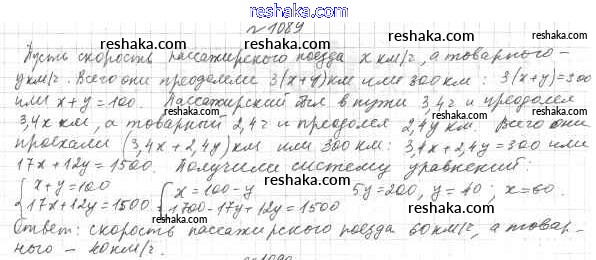 reshaka.com
№1089
reshaka.com reshaka.com
Пусть скорость пассажирского поезда x км/ч, а товарного –
y км/ч. Всего они преодолели 3(x+y) км или 300 км: 3(x+y)=300
или x+y=100. Пассажирский был в пути 3,4ч и преодолел
reshaka.com reshaka.com
3,4x км, а товарный 2,4ч и преодолел 2,4y км. Всего они
проехали (3,4x+2,4y) км или 300 км: 3,4x+2,4y=300 или
reshaka.com reshaka.com
17x+12y=1500. Получили систему уравнений:
{x+y=100 {x=100-y 5y=200, y=40; x=60.
17x+12y=1500 1700-17y+12y=1500
reshaka.com reshaka.com
Ответ: скорость пассажирского поезда 60 км/ч, а товар-
ного – 40 км/ч.
reshaka.com reshaka.com